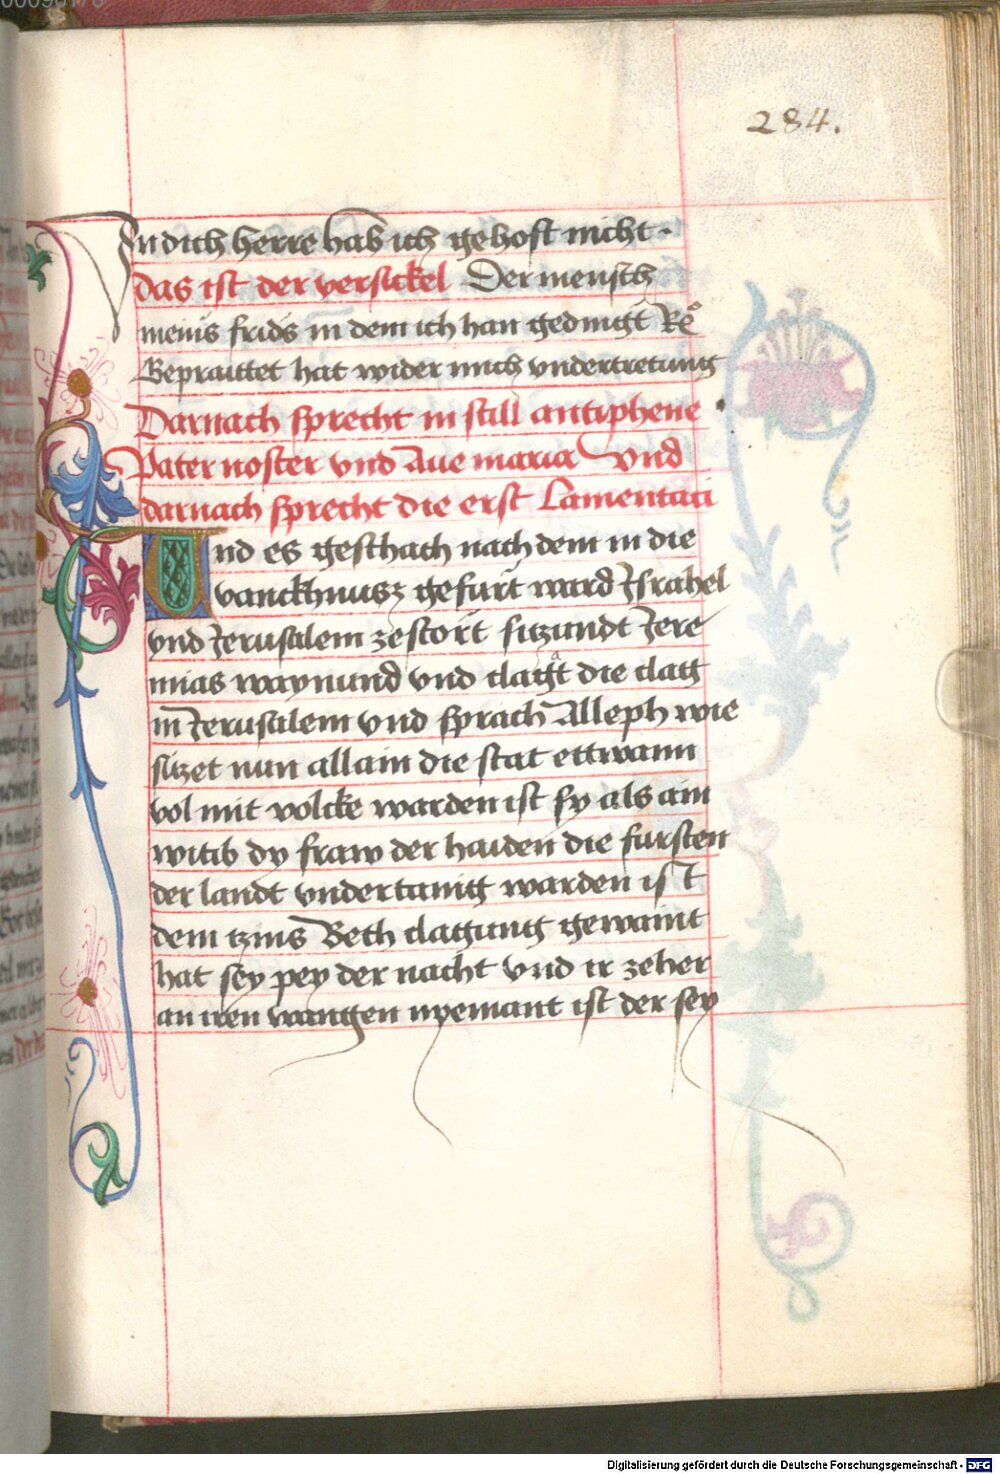 284.
In dich herre hab ich gehoft nicht ·
das ist der versickel Der mensch
meins frids in dem ich han gedingt Re͞
Beprauttet hat wider mich undertretung
Darnach sprecht in still antiphene
Pater noster vnd Aue maria vnd
darnach sprecht die erst Lamentaci
Und es geschach nach dem in die
vanckhnusz gefürt ward Israhel
vnd Jerusalem zestört sitzundt Jere
mias waynund vnd clagt die clag
in Jerusalem vnd sprach Alleph wie
sitzet nun allain die stat ettwann
vol mit volcke warden ist sy als ain
witib dy fraw der haiden die fursten
der landt vndertanig warden ist
dem tzins Beth clagung gewaint
hat sey pey der nacht vnd ir zeher
an iren wangen nyemant ist der sey
Digitalisierung gefördert durch die Deutsche Forschungsgemeinschaft - DFG